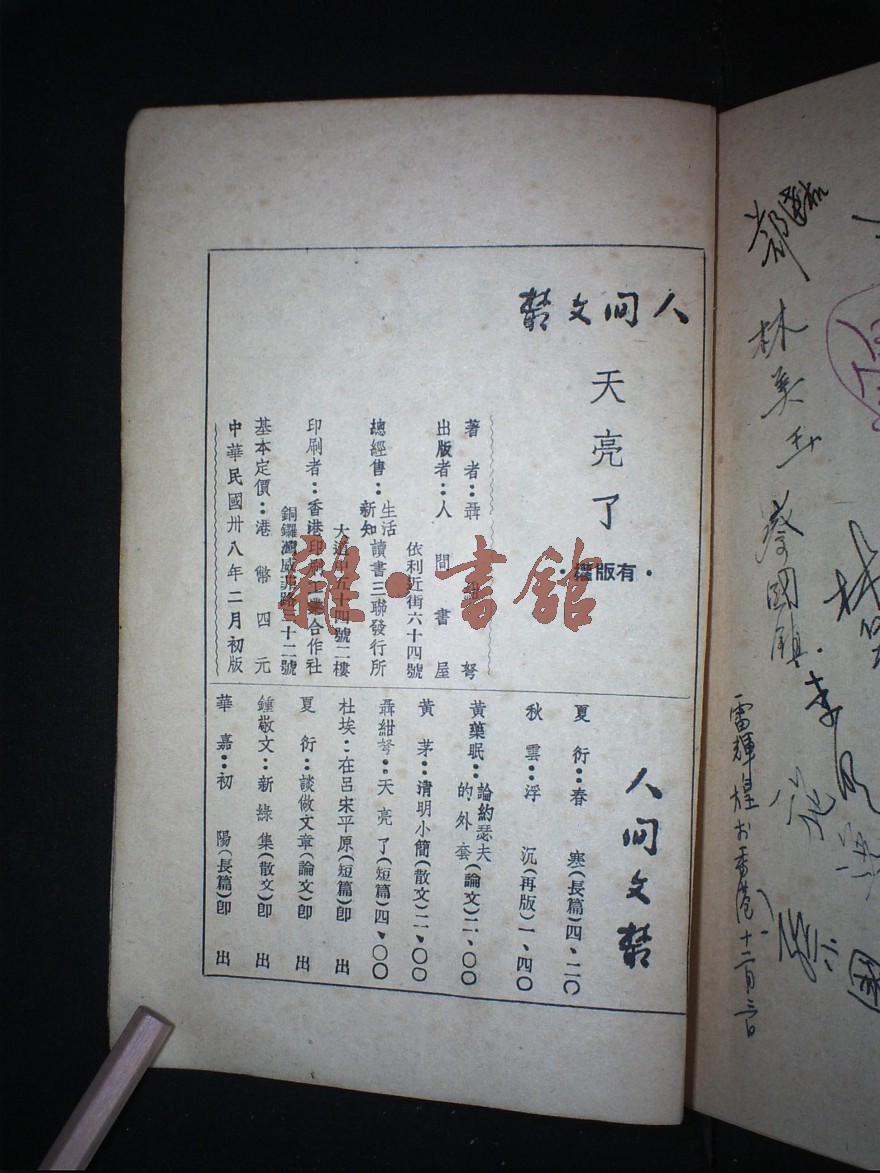 人间文丛
天亮了
·有版權·
著者：聶紺弩
出版者：人間書屋
依利近街六十四號
總經售：生活
新知
讀書三聯發行所
大道中五十四號二樓
印刷者：香港印刷工業合作社
銅鑼灣威非路三十二號
基本定價：港幣四元
中華民國卅八年二月初版
人间文丛
夏衍：春寒(長篇)四、二〇
秋雲：浮沉(再版)一、四〇
黃藥眠：論約瑟夫
的外套(論文)二、〇〇
黃茅：清明小簡(散文)二、〇〇
聶紺弩：天亮了(短篇)四、〇〇
杜埃：在呂宋平原(短篇)即出
夏衍：談做文章(論文)即出
鍾敬文：新綠集(散文)即出
華嘉：初陽(長篇)即出
雜·書館
林美
蔡國鎮
李
雷輝煌於香港
十二月三日